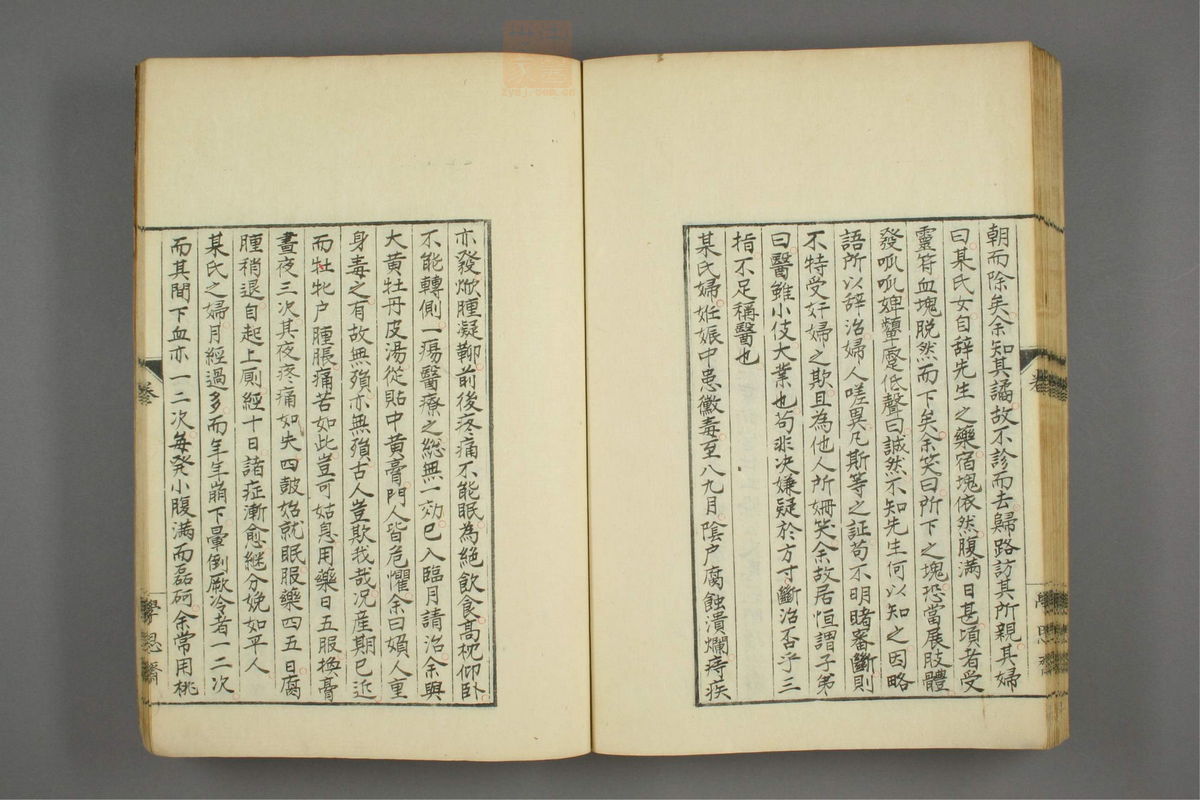 朝而除矣余知其譎故不診而去歸路訪其所親其婦
曰某氏女自辞先生之藥宿塊依然腹満日甚頃者受
靈符血塊脱然而下矣余笑曰所下之塊恐當展肢體
發呱呱婢顰蹙低聲曰誠然不知先生何以知之因略
語所以辞治婦人嗟異凡斯等之証苟不明睹審斷則
不特受奸婦之欺且為他人所姍笑余故居恒謂子弟
曰醫雖小伎大業也苟非决嫌疑於方寸斷治否乎三
指不足稱醫也
某氏婦姙娠中患黴毒至八九月陰戸腐蝕潰爛痔疾
亦發焮腫凝鞕前後疼痛不能眠為絶飲食高枕仰卧
不能轉側一瘍醫療之総無一効已入臨月請治余與
大黄牡丹皮湯從貼中黄膏門人皆危懼余曰婦人重
身毒之有故無殞亦無殞古人豈欺我哉况産期已近
而牡牝戸腫脹痛苦如此豈可姑息用藥日五服換膏
晝夜三次其夜疼痛如失四皷始就眠服藥四五日腐
腫稍退自起上厠經十日諸症漸愈継分娩如平人
某氏之婦月經過多而年年崩下暈倒厥冷者一二次
而其間下血亦一二次毎発小腹満而磊砢余常用桃
卷
學思齋